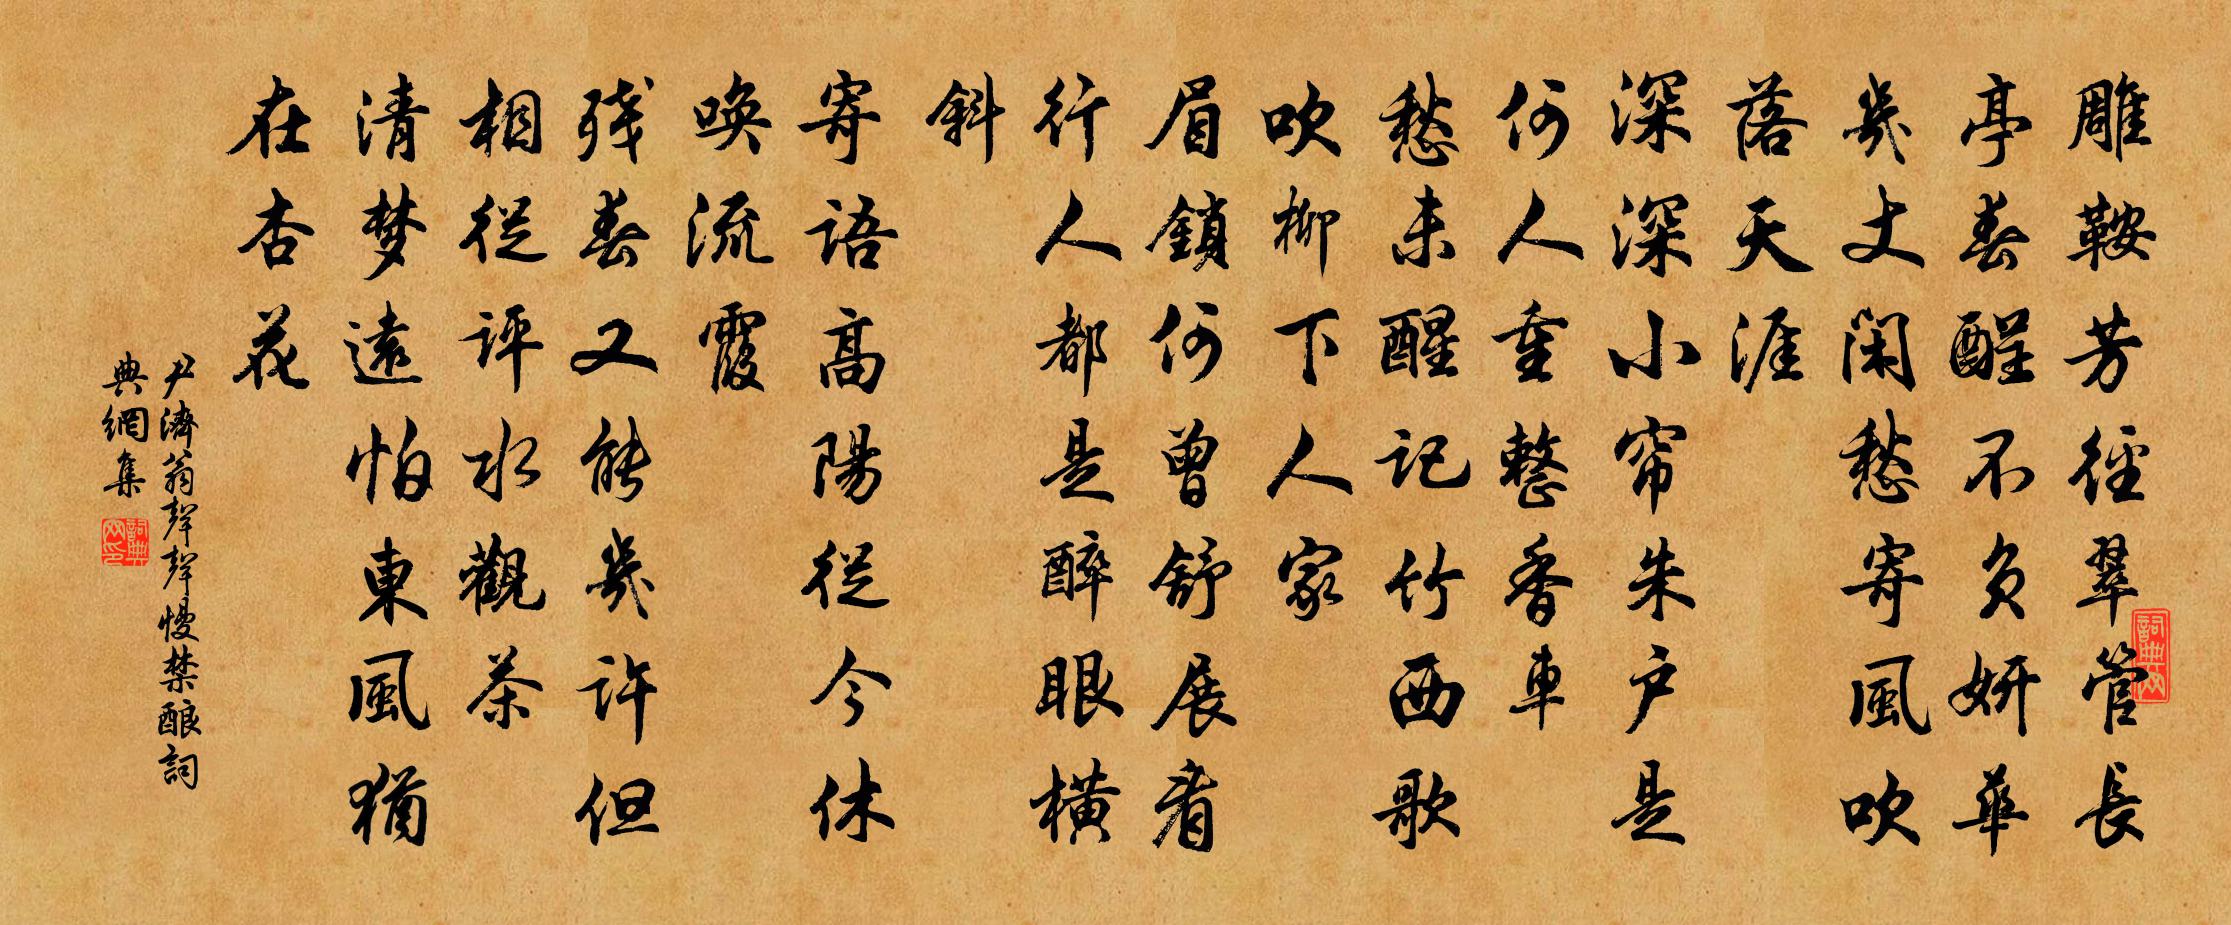 雕鞍芳徑翠管長
亭春酲不負妍華
幾丈閑愁寄風吹
落天涯
深深小帘朱户是
何人重整香車
愁未醒記竹西歌
吹柳下人家
眉鎖何曾舒展看
行人都是醉眼橫
斜
寄語高陽從今休
喚流霞
殘春又能幾許但
相從評水觀茶
清梦遠怕東風猶
在杏花
尹濟翁聲聲慢禁酿詞
典網集
詞典网
詞典网印